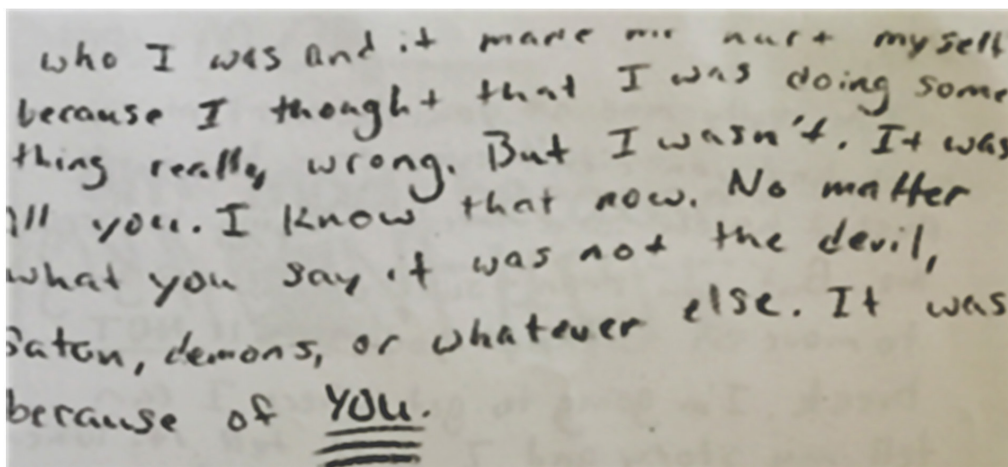 who I was and it made me hurt myself
because I thought that I was doing some
thing really wrong. But I wasn't. It was
all you. I know that now. No matter
what you say it was not the devil,
Saton, demons, or whatever else. It was
because of YOU.